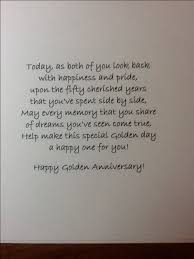 Today, as both of you look back
with happiness and pride,
upon the fifty cherished years
that you've spent side by side,
May every memory that you share
of dreams you've seen come true,
Help make this special Golden day
a happy one for you!
Happy Golden Anniversary!